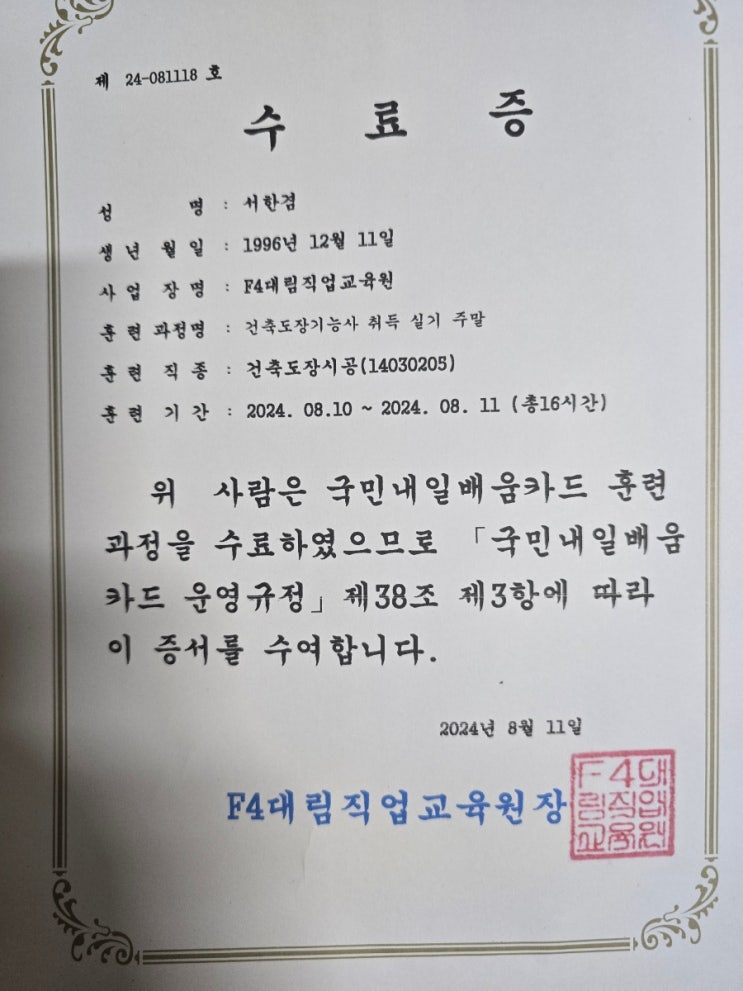 제 24-081118 호
수 료 증
성 명 : 서한겸
생 년 월 일 : 1996년 12월 11일
사 업 장 명 : F4대림직업교육원
훈 련 과정명 : 건축도장기능사 취득 실기 주말
훈 련 직 종 : 건축도장시공(14030205)
훈 련 기 간 : 2024. 08.10 ~ 2024. 08. 11 (총16시간)
위 사람은 국민내일배움카드 훈련
과정을 수료하였으므로 「국민내일배움
카드 운영규정」 제38조 제3항에 따라
이 증서를 수여합니다.
2024년 8월 11일
F4대림직업교육원장
F4대
림직업
교육원